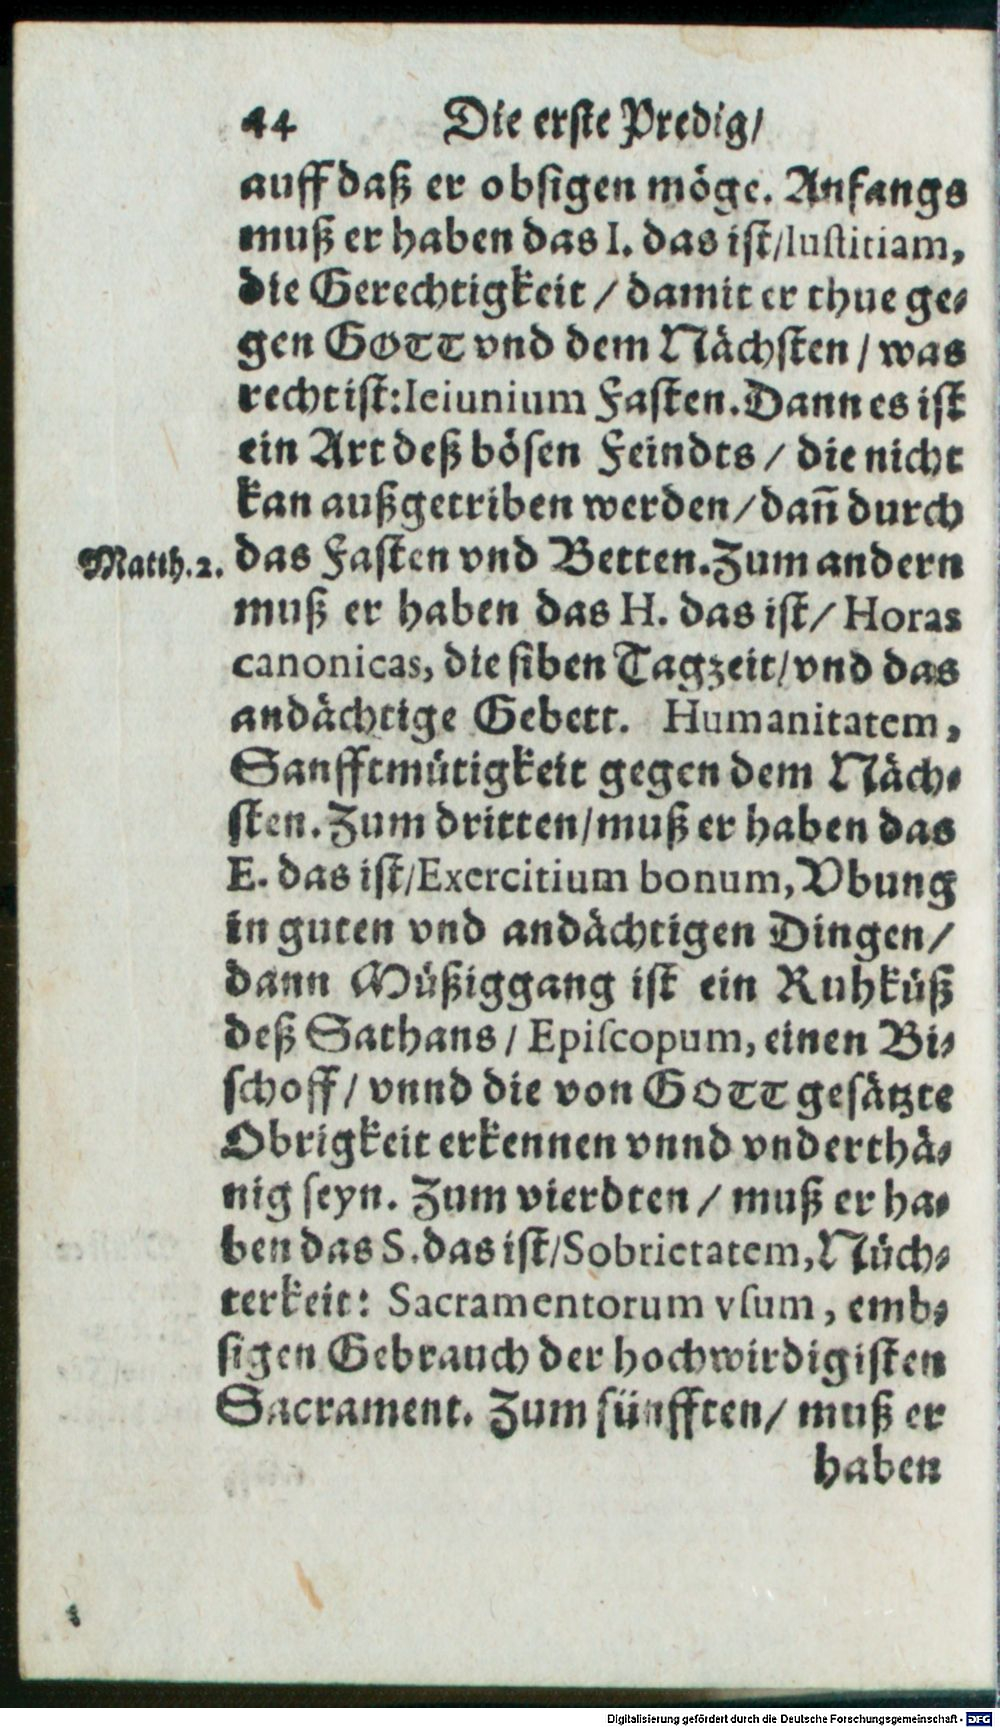 44 Die erste Predig/
auff daß er obsigen möge. Anfangs
muß er haben das I. das ist/Iustitiam,
die Gerechtigkeit / damit er thue ge-
gen GOTT vnd dem Nächsten / was
recht ist: Ieiunium Fasten. Dann es ist
ein Art deß bösen Feindts / die nicht
kan außgetriben werden/dañ durch
Matth.2. das Fasten vnd Betten. Zum andern
muß er haben das H. das ist/ Horas
canonicas, die siben Tagzeit/vnd das
andächtige Gebett. Humanitatem,
Sanfftmütigkeit gegen dem Näch-
sten. Zum dritten/muß er haben das
E. das ist/Exercitium bonum, Vbung
in guten vnd andächtigen Dingen/
dann Müßiggang ist ein Ruhküß
deß Sathans / Episcopum, einen Bi-
schoff/ vnnd die von GOTT gesätzte
Obrigkeit erkennen vnnd vnderthä-
nig seyn. Zum vierdten / muß er ha-
ben das S. das ist/Sobrietatem, Nüch-
terkeit: Sacramentorum vsum, emb-
sigen Gebrauch der hochwirdigisten
Sacrament. Zum fünfften/ muß er
haben
Digitalisierung gefördert durch die Deutsche Forschungsgemeinschaft - DFG